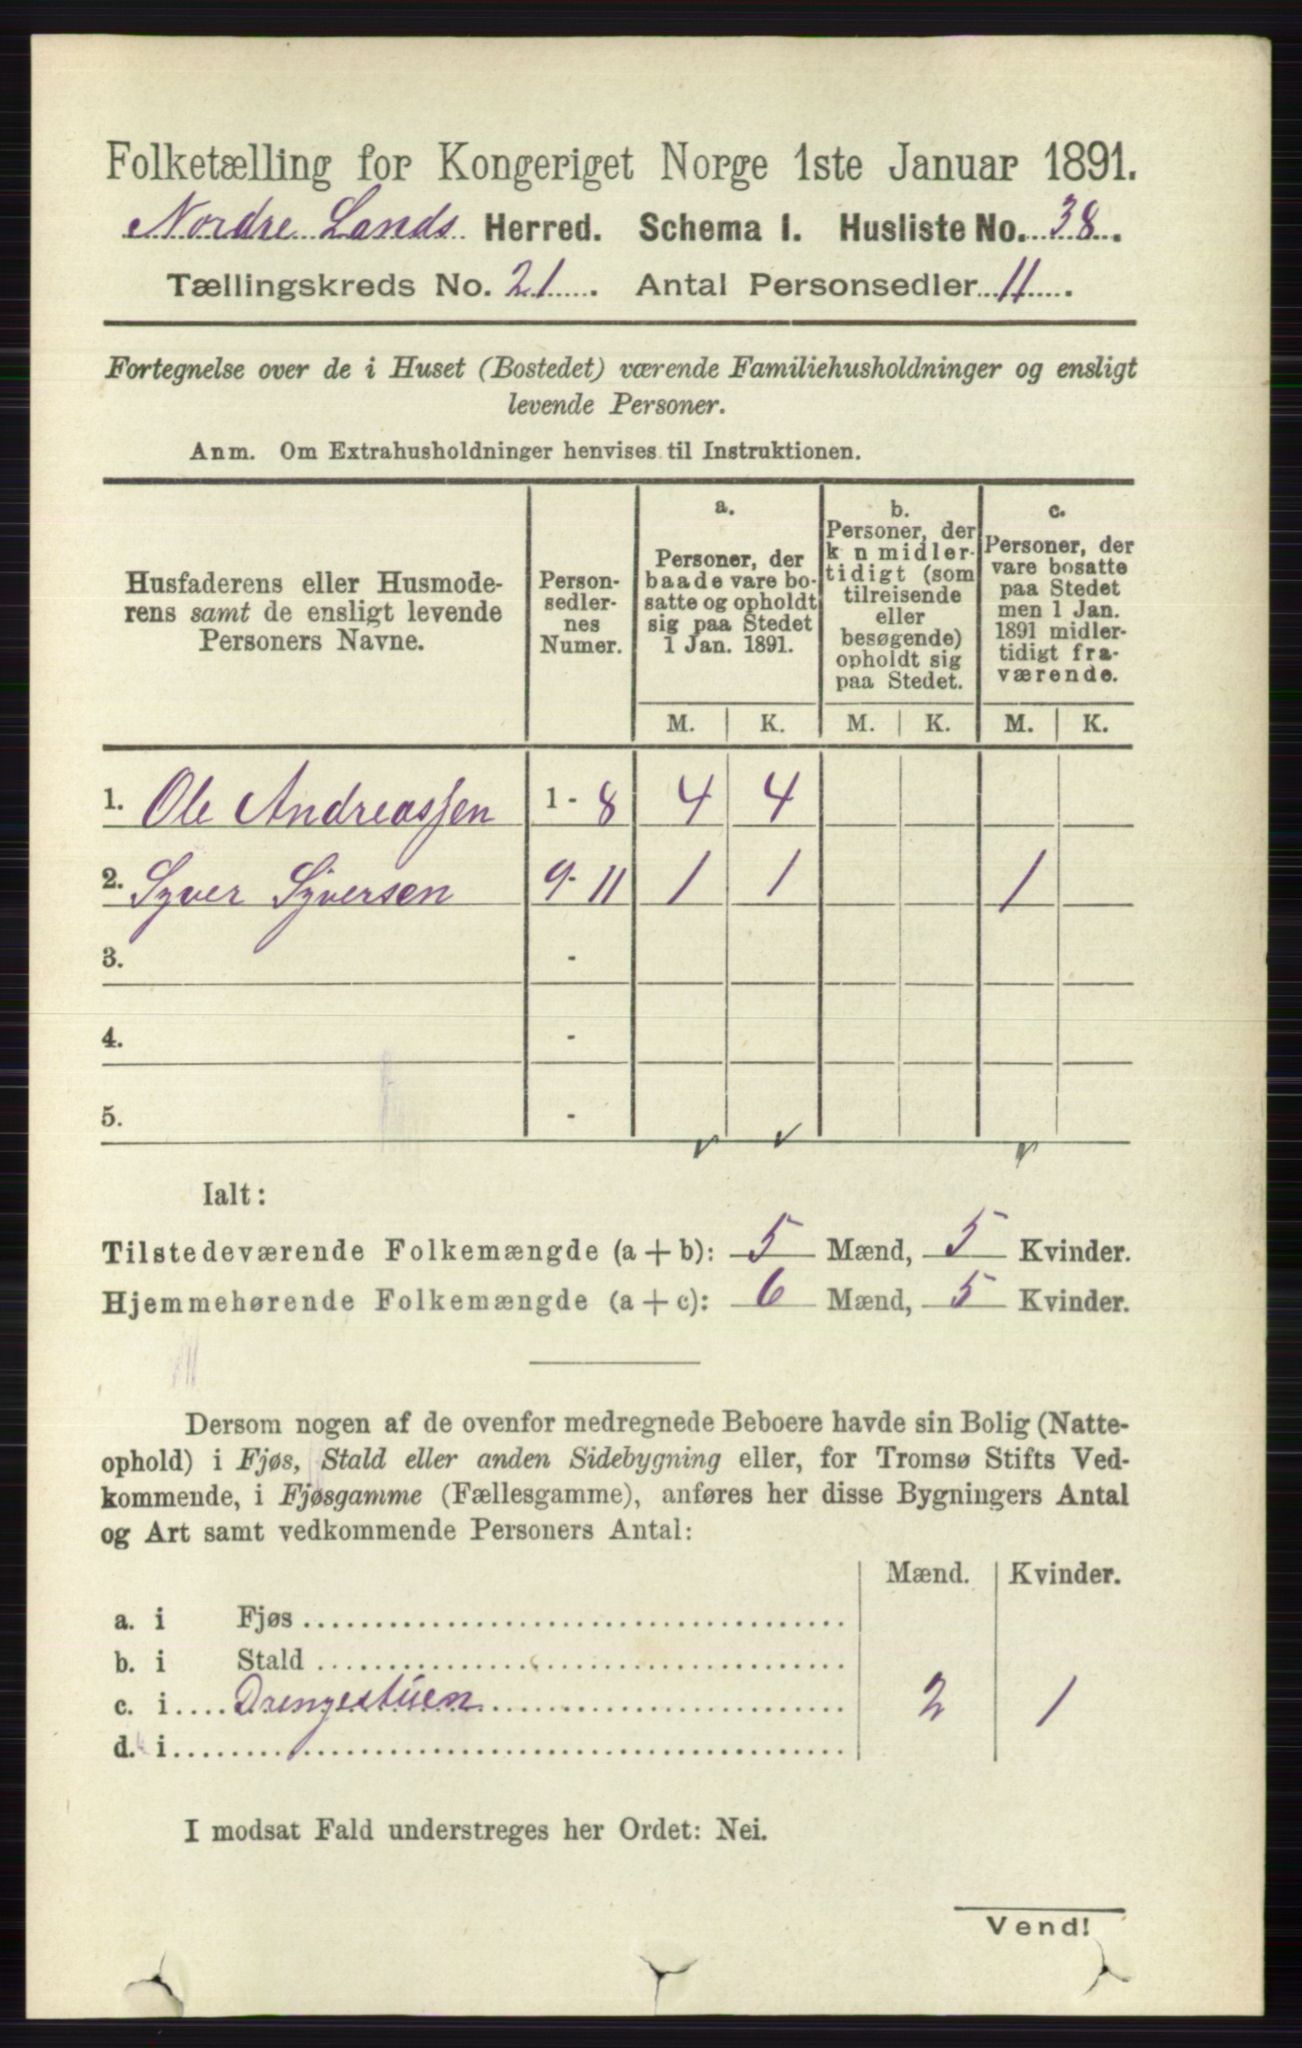 Folketælling for Kongeriget Norge 1ste Januar 1891.
Nordre Lands Herred. Schema I. Husliste No. 38.
Tællingskreds No. 21. Antal Personsedler 11.
Fortegnelse over de i Huset (Bostedet) værende Familiehusholdninger og ensligt
levende Personer.
Anm. Om Extrahusholdninger henvises til Instruktionen.
Husfaderens eller Husmode-
rens samt de ensligt levende
Personers Navne.
Person-
sedler-
nes
Numer.
a.
Personer, der
baade vare bo-
satte og opholdt
sig paa Stedet
1 Jan. 1891.
b.
Personer, der
k n midler-
tidigt (som
tilreisende
eller
besøgende)
opholdt sig
paa Stedet.
c.
Personer, der
vare bosatte
paa Stedet
men 1 Jan.
1891 midler-
tidigt fra-
værende.
M. K. M. K. M. K.
1. Ole Andreassen 1 - 8 4 4
2. Syver Syversen 9 - 11 1 1 1
3. -
4. -
5. -
Ialt:
Tilstedeværende Folkemængde (a + b): 5 Mænd, 5 Kvinder.
Hjemmehørende Folkemængde (a + c): 6 Mænd, 5 Kvinder.
Dersom nogen af de ovenfor medregnede Beboere havde sin Bolig (Natte-
ophold) i Fjøs, Stald eller anden Sidebygning eller, for Tromsø Stifts Ved-
kommende, i Fjøsgamme (Fællesgamme), anføres her disse Bygningers Antal
og Art samt vedkommende Personers Antal:
Mænd. Kvinder.
a. i Fjøs
b. i Stald
c. i Drengestuen 2 1
d. i
I modsat Fald understreges her Ordet: Nei.
Vend!